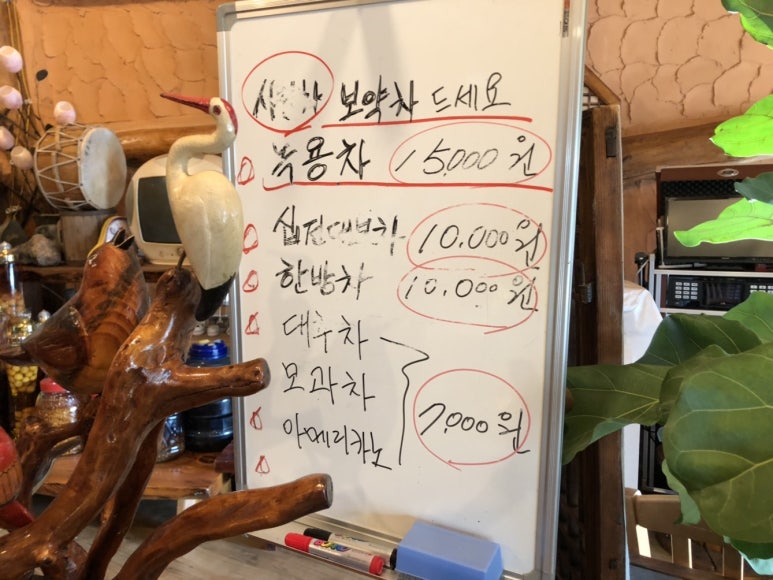 보약차 드세요
녹용차 15,000원
십전대보차 10,000원
한방차 10,000원
대추차
모과차 7,000원
아메리카노